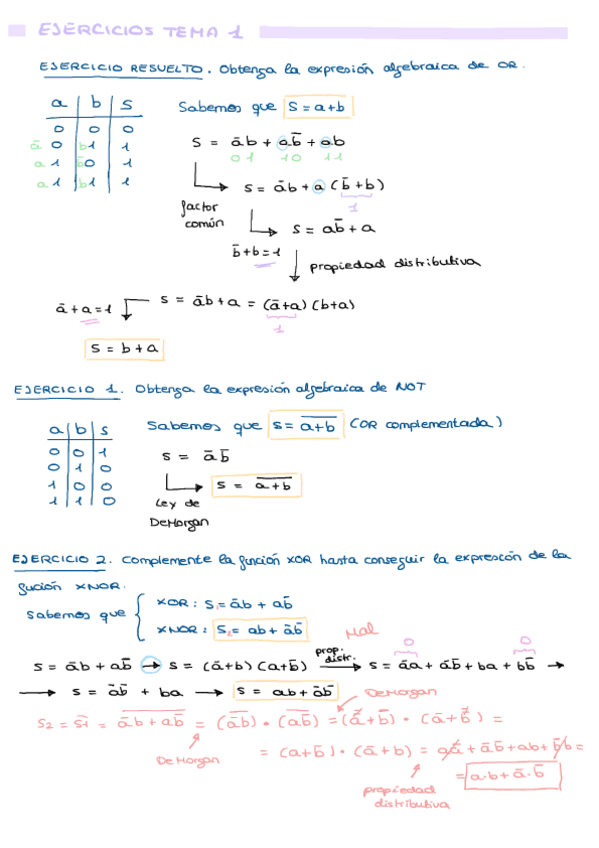 EJERCICIOS TEMA 1
EJERCICIO RESUELTO. Obtenga la expresión algebraica de OR.
a b s
0 0 0
ā 0 b 1 1
a 1 b̄ 0 1
a 1 b 1 1
Sabemos que S = a+b
S = āb + ab̄ + ab
01 10 11
S = āb + a (b̄+b)
1
factor común
S = ab̄ + a
b̄+b=1
propiedad distributiva
ā+a=1
S = āb+a = (ā+a)(b+a)
1
S = b+a
EJERCICIO 1. Obtenga la expresión algebraica de NOT
a b s
0 0 1
0 1 0
1 0 0
1 1 0
Sabemos que S = \overline{a+b} (OR complementada)
S = āb̄
S = \overline{a+b}
Ley de DeMorgan
EJERCICIO 2. Complemente la función XOR hasta conseguir la expresión de la
fución XNOR.
Sabemos que
XOR: S₁= āb + ab̄
XNOR: S₂= ab + āb̄
Mal
S = āb + ab̄ → S = (ā+b)(a+b̄) prop. distr. → S = āa + āb̄ + ba + bb̄ →
0 0
→ S = āb̄ + ba → S = ab + āb̄
DeMorgan
S₂ = \overline{S₁} = \overline{āb + ab̄} = (\overline{āb}) · (\overline{ab̄}) = (\overline{ā}+b̄) · (ā+\overline{b̄}) =
DeMorgan
= (a+b̄) · (ā+b) = aā + āb̄ + ab + b̄b =
= a·b + ā·b̄
propiedad
distributiva